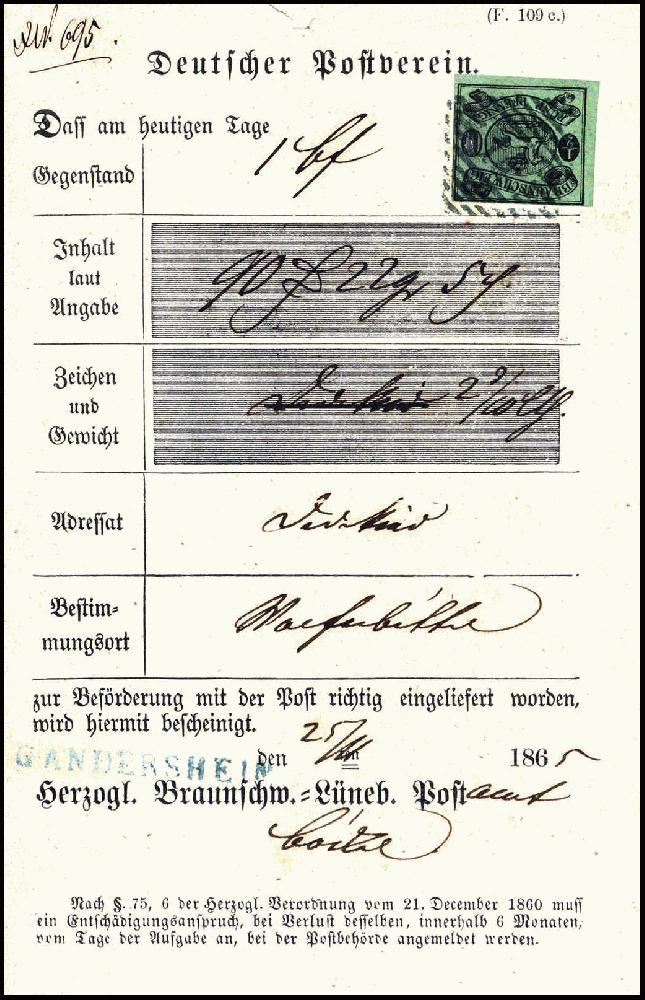 (F. 109 c.)
695.
Deutſcher Poſtverein.
Daſſ am heutigen Tage
Gegenſtand
1 bf
Inhalt
laut
Angabe
90 22 gr 5
Zeichen
und
Gewicht
2 9/10
Adreſſat
Bestim-
mungsort
Wolfenbüttel
zur Beförderung mit der Poſt richtig eingeliefert worden,
wird hiermit beſcheinigt.
GANDERSHEIM
den 25/ 1865
Herzogl. Braunſchw.-Lüneb. Poſtamt
Nach §. 75, 6 der Herzogl. Verordnung vom 21. December 1860 muſſ
ein Entſchädigungsanſpruch, bei Verluſt deſſelben, innerhalb 6 Monaten,
vom Tage der Aufgabe an, bei der Poſtbehörde angemeldet werden.